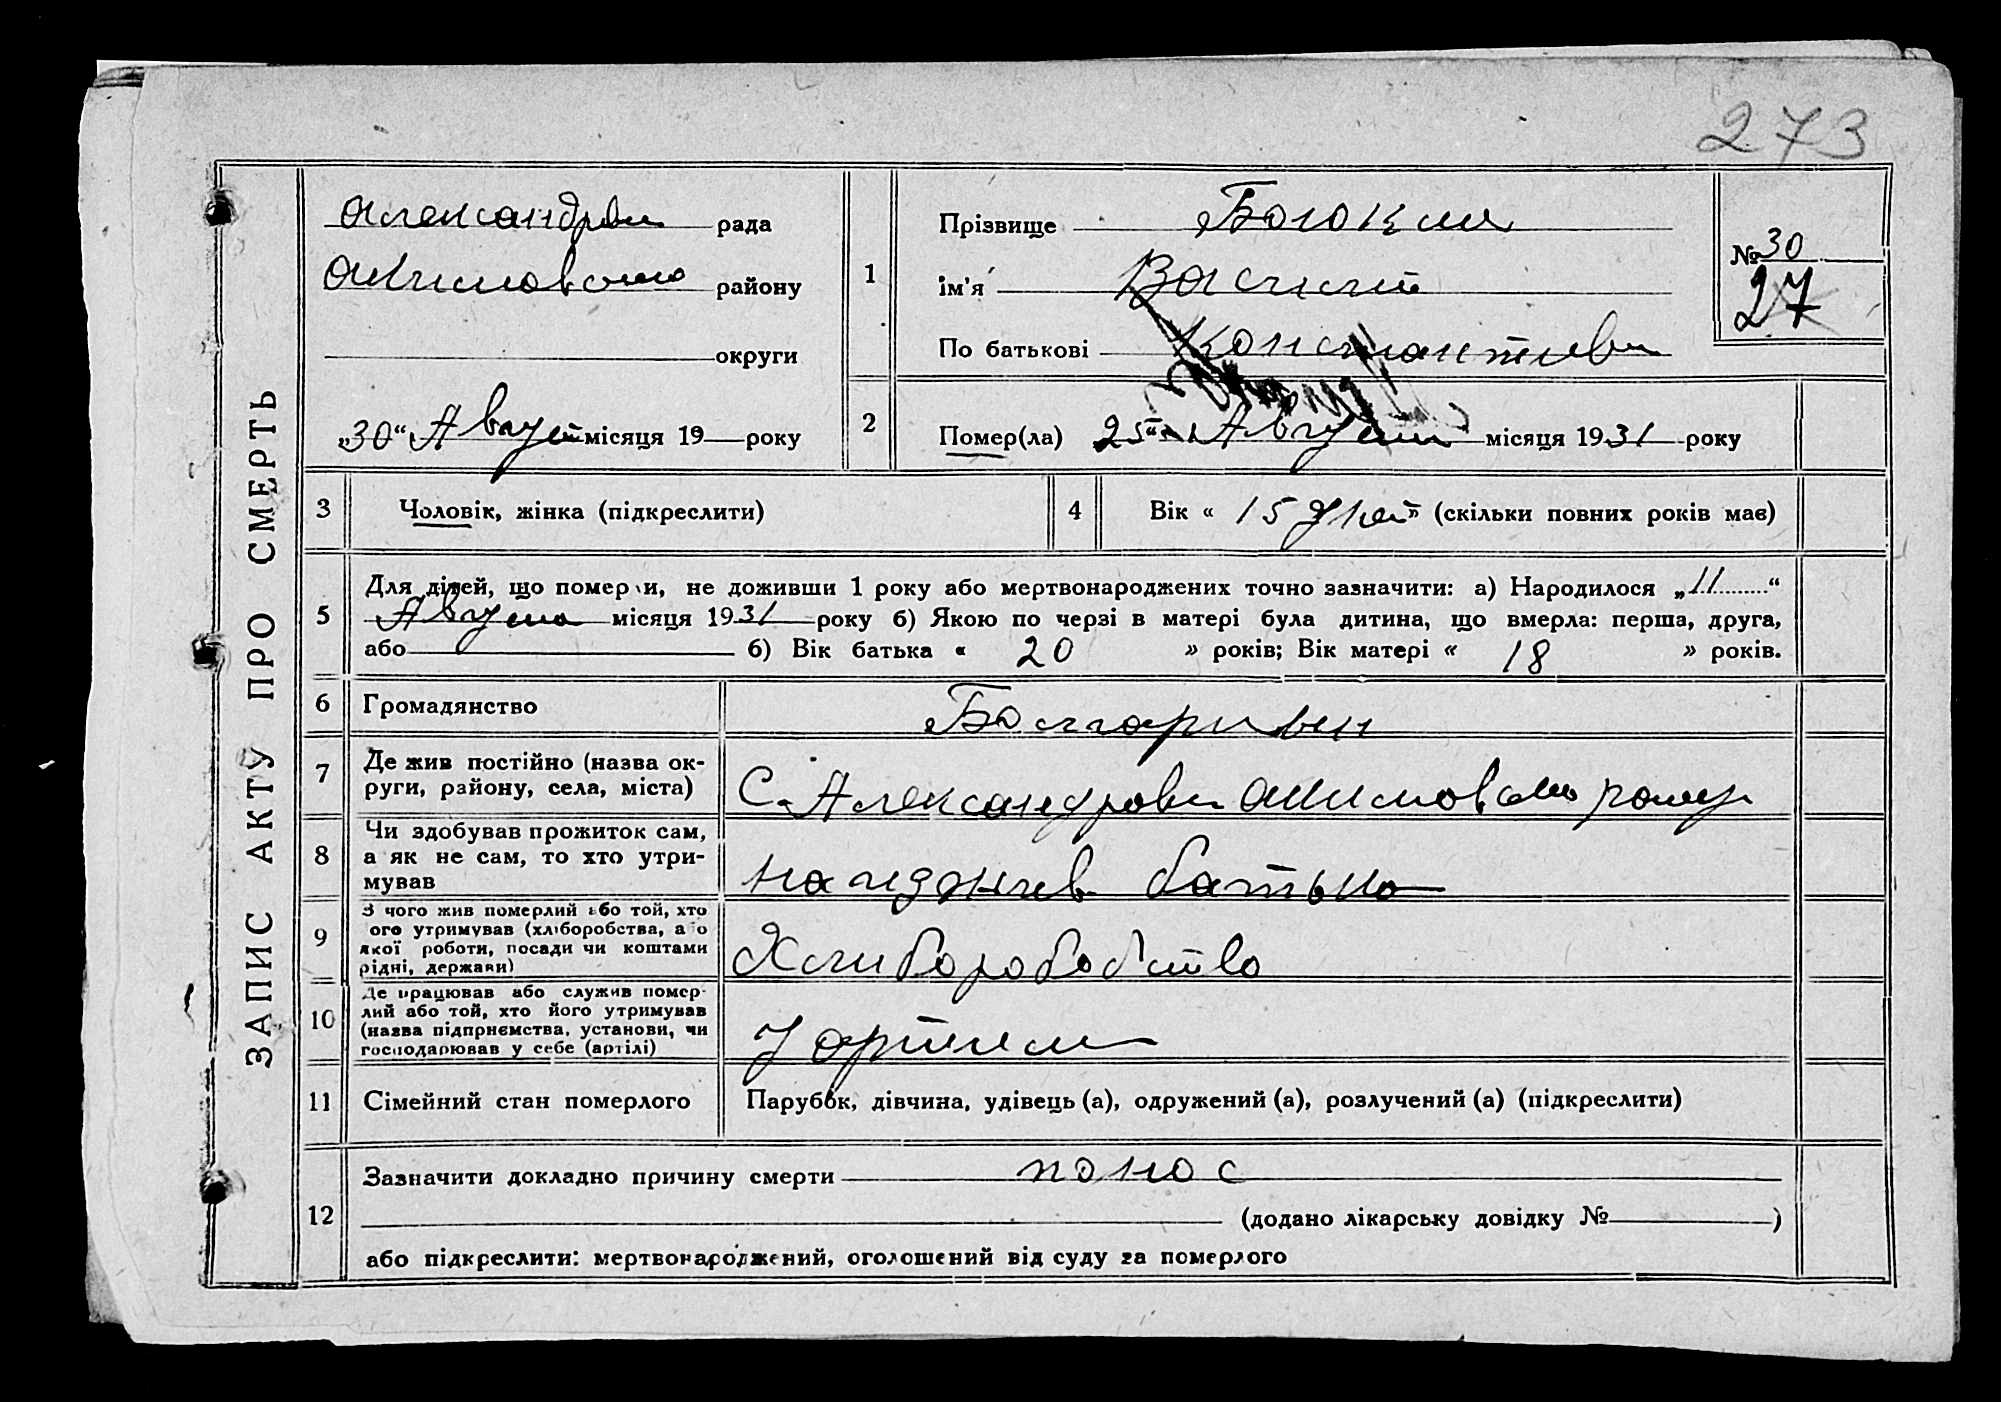 273
ЗАПИС АКТУ ПРО СМЕРТЬ
Александров рада
Акимовського району
округи
„30“ Август місяця 19 року
1
Прізвище
ім'я Василий
По батькові Константинов
№ 30
27
2
Помер(ла) 25 Август місяця 1931 року
3
Чоловік, жінка (підкреслити)
4
Вік « 15 дней » (скільки повних років має)
5
Для дітей, що померли, не доживши 1 року або мертвонароджених точно зазначити: а) Народилося „11“
Августа місяця 1931 року б) Якою по черзі в матері була дитина, що вмерла: перша, друга,
або б) Вік батька « 20 » років; Вік матері « 18 » років.
6
Громадянство
7
Де жив постійно (назва ок-
руги, району, села, міста)
С. Александровка
8
Чи здобував прожиток сам,
а як не сам, то хто утри-
мував
батько
9
З чого жив померлий або той, хто
ого утримував (хліборобства, або
якої роботи, посади чи коштами
рідні, держави)
10
Де працював або служив помер-
лий або той, хто його утримував
(назва підприємства, установи, чи
господарював у себе (артілі)
У артили
11
Сімейний стан померлого
Парубок, дівчина, удівець (а), одружений (а), розлучений (а) (підкреслити)
12
Зазначити докладно причину смерти понос
(додано лікарську довідку № )
або підкреслити: мертвонароджений, оголошений від суду за померлого